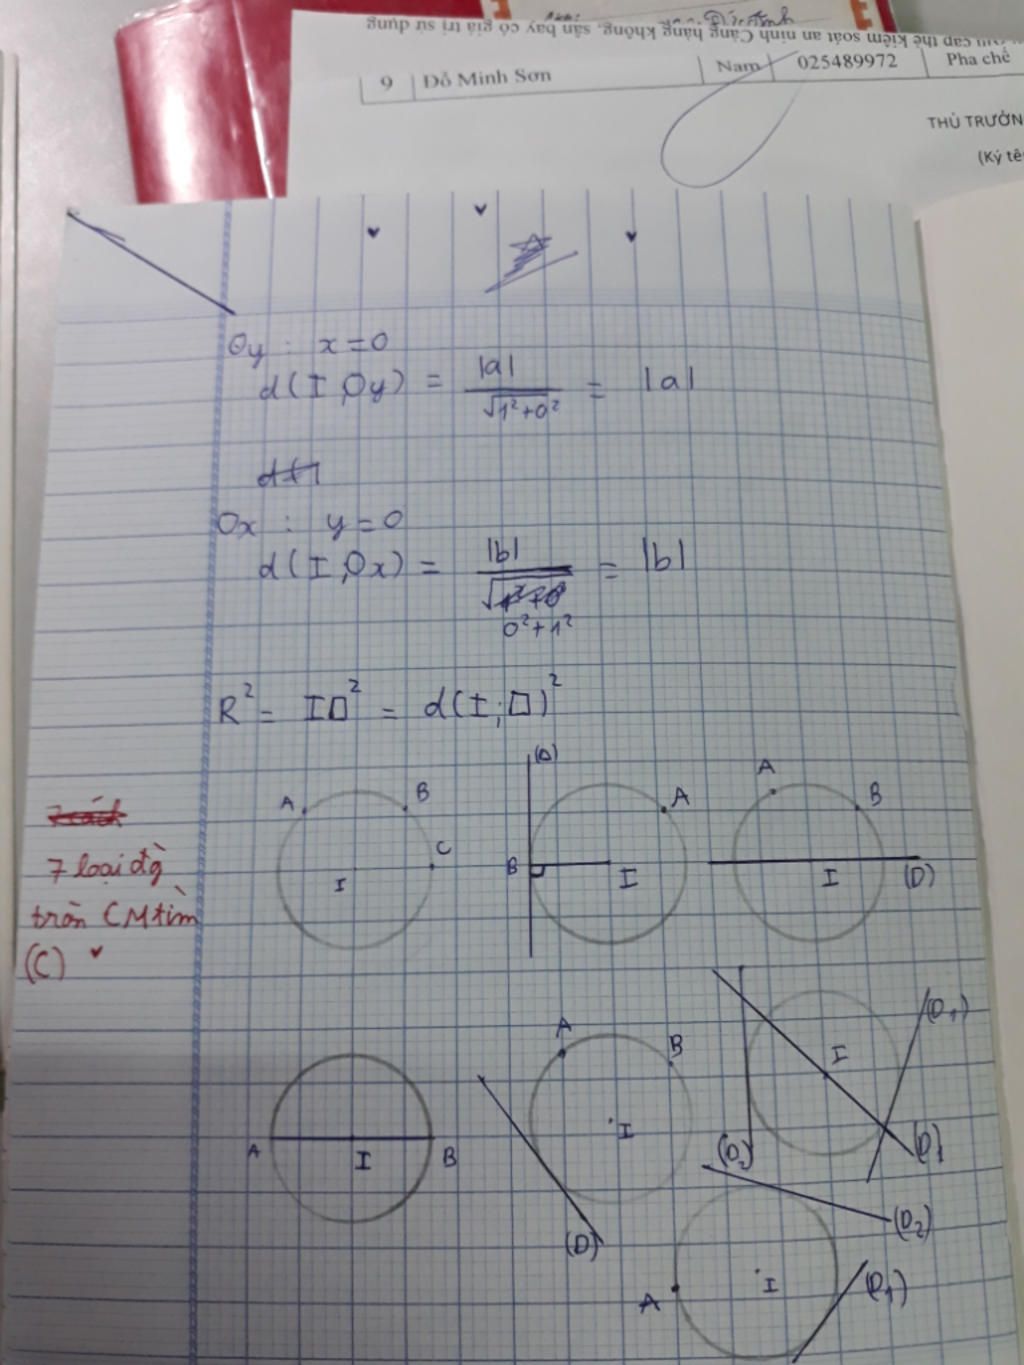 cấp thẻ kiểm soát an ninh Cảng hàng không, sân bay có giá trị sử dụng
9 Đỗ Minh Sơn Nam 025489972 Pha chế
THỦ TRƯỞN
(Ký tê
Oy : x = 0
d(I,Oy) = |a| / √1²+0² = |a|
Ox : y = 0
d(I,Ox) = |b| / √0²+1² = |b|
R² = I□² = d(I;□)²
7 cách
7 loại đg
tròn CM tìm
(C)
A B C I
(D) A B I
A B I (D)
A I B
A B I (D)
I (D₁) (D) (D₂)
A I (D₂) (D₁)